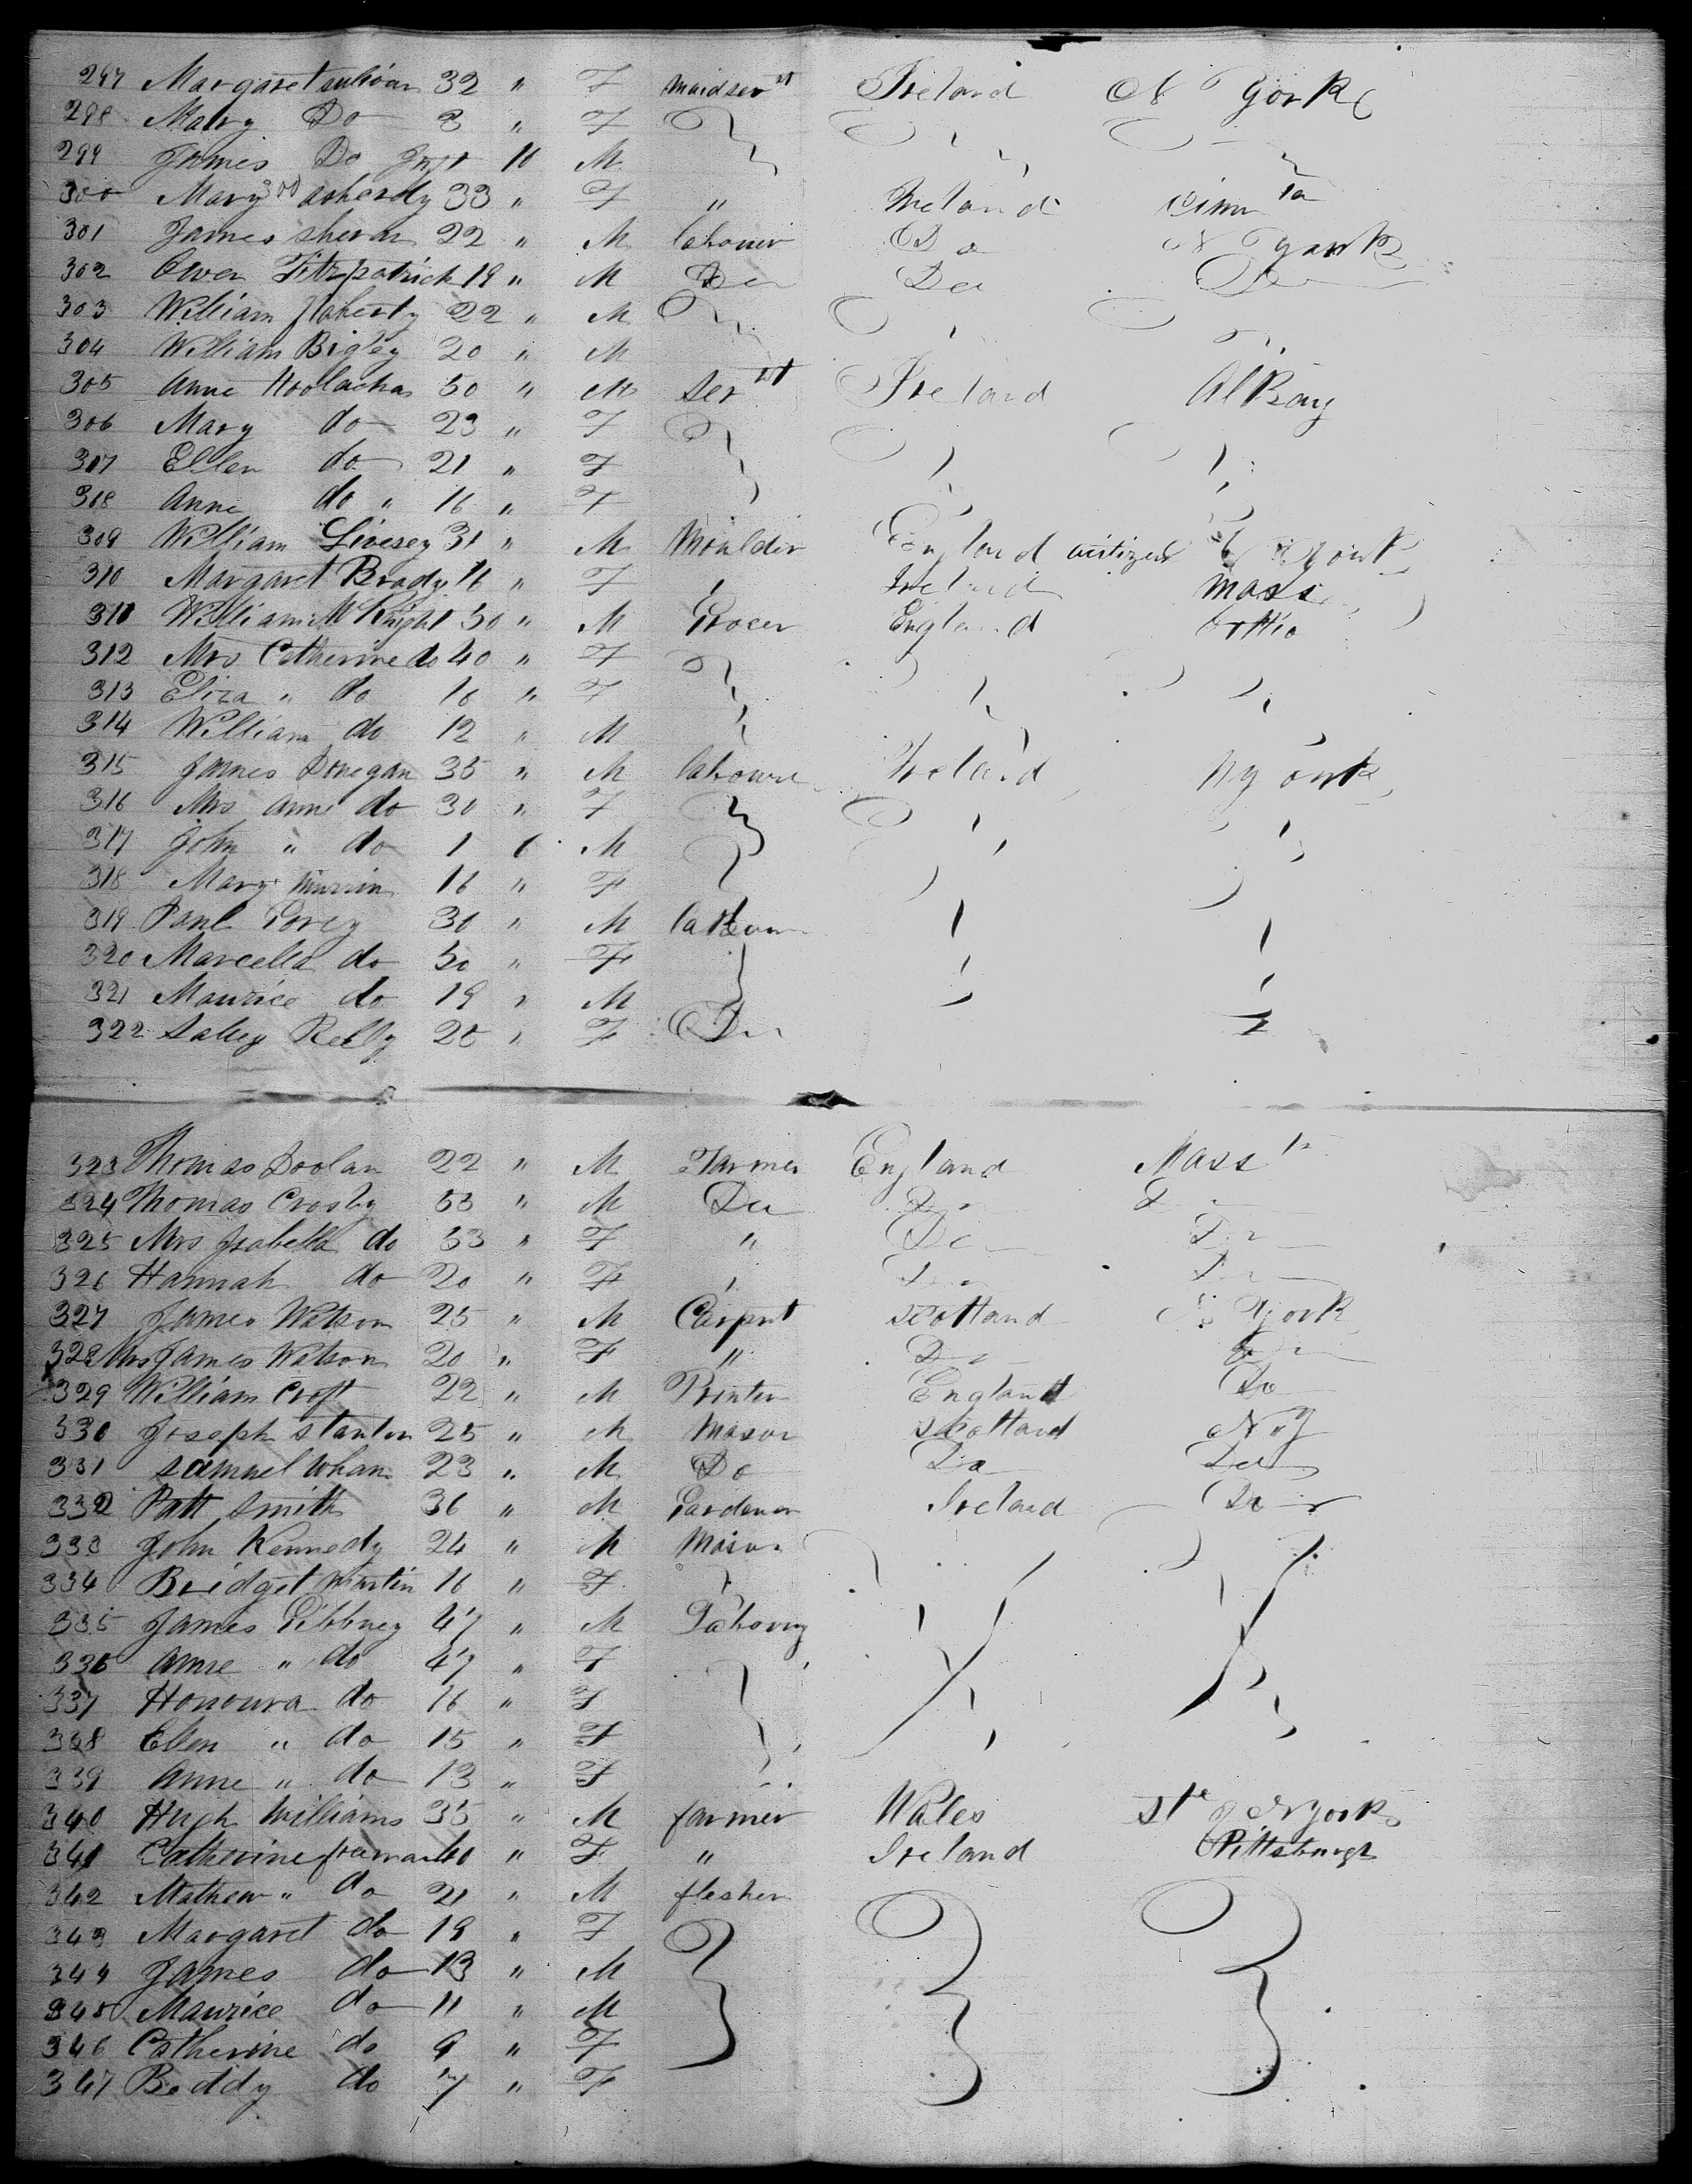 297 Margaret sulivan 32 " F maidservt Ireland N York
298 Mary Do 8 " F
299 James Do Inft 10 M
300 Mary flaherdy 33 " F " Ireland
301 James sheran 22 " M labourer Do N York
302 Owen Fitzpatrick 19 " M Do Do Do
303 William flaherty 22 " M
304 William Bigley 20 " M
305 Anne Hoolachan 50 " M Servt Ireland AlBany
306 Mary do 23 " F
307 Ellen do 21 " F
318 Anne do " 16 " F
309 William Livesey 31 " M Moulder England citizen N York
310 Margaret Brady 16 " F Ireland Mass
311 William McKnight 50 " M Grocer England ohio
312 Mrs Catherine do 40 " F
313 Eliza " do 16 " F
314 William do 12 " M
315 James Donegan 35 " M laboure Ireland NYork
316 Mrs Anne do 30 " F
317 John " do 1 6 M
318 Mary 16 " F
319 Paul Gorey 30 " M labour
320 Marcella do 50 " F
321 Maurice do 19 " M
322 Salley Relly 25 " F Do
323 Thomas Doolan 22 " M Farmer England Mass
324 Thomas Crosby 53 " M Do Do Do
325 Mrs Isabella do 53 " F " Do Do
326 Hannah do 20 " F Do Do
327 James Watson 25 " M Carpnt scotland N York
328 Mrs James Watson 20 " F " Do Do
329 William Croft 22 " M Printer England Do
330 Joseph stanton 25 " M Mason scotland N Y
331 samuel Whan 23 " M Do Do Do
332 Patt smith 36 " M Gardener Ireland Do
333 John Kennedy 24 " M Mason
334 Bridget Martin 16 " F
335 James Gibbney 47 " M Labourg
336 Anne " do 47 " F
337 Honoura do 16 " F
338 Ellen " do 15 " F
339 Anne " do 13 " F
340 Hugh Williams 35 " M farmer Wales Ste of NYork
341 Catherine freeman 40 " F " Ireland Pittsburgh
342 Mathew " do 21 " M flesher
343 Margaret do 19 " F
344 James do 13 " M
345 Maurice do 11 " M
346 Catherine do 9 " F
347 Beddy do 7 " F